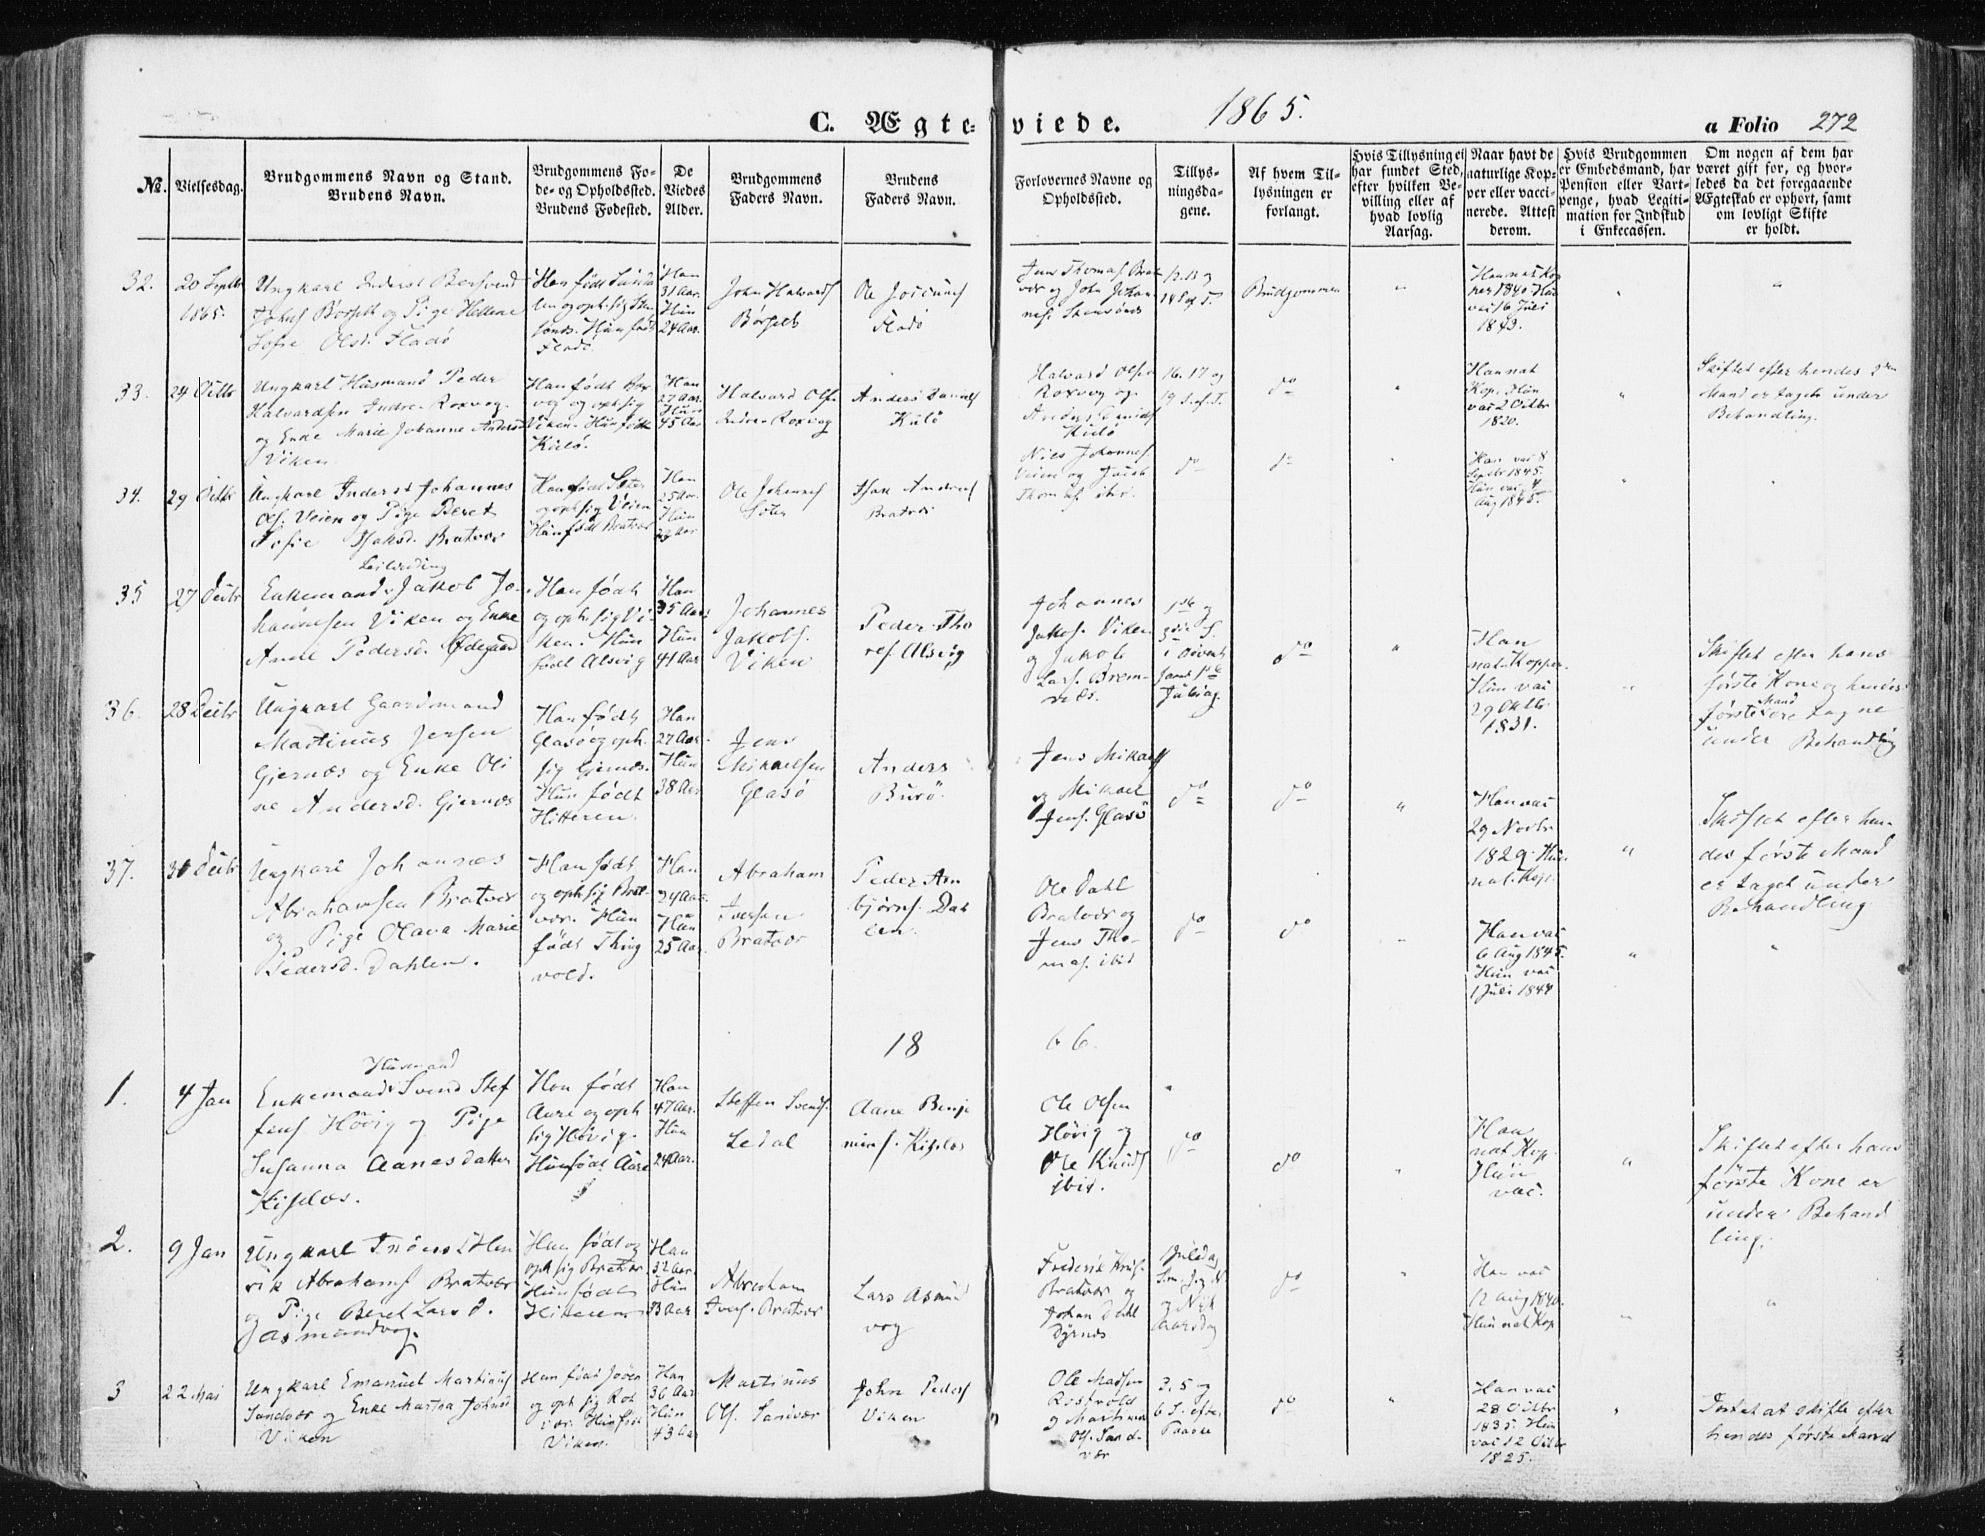 C. Ægteviede. 1865. a Folio 272
No.
Vielsesdag.
Brudgommens Navn og Stand.
Brudens Navn.
Brudgommens Fo-
de- og Opholdssted.
Brudens Fødested.
De
Viedes
Alder.
Brudgommens
Faders Navn.
Brudens
Faders Navn.
Forlovernes Navne og
Opholdssted.
Tillys-
ningsda-
gene.
Af hvem Til-
lysningen er
forlangt.
Hvis Tillysning ei
har fundet Sted,
efter hvilken Be-
villing eller af
hvad lovlig
Aarsag.
Naar havt de
naturlige Kop-
per eller vacci-
nerede. Attest
derom.
Hvis Brudgommen
er Embedsmand, har
Pension eller Vart-
penge, hvad Legiti-
mation for Indskud
i Enkecassen.
Om nogen af dem har
været gift for, og hvor-
ledes da det foregaaende
Ægteskab er ophørt, samt
om lovligt Skifte
er holdt.
32.
20 Septbr
1865.
Ungkarl Inderst
Johns Børseth og Pige Hellene
Sofie Olsd. Fladø
Han født
og oph. sig
Hun født
Fladø
Han
31 Aar.
Hun
24 Aar.
John Halvards
Børseth
Ole
Fladø
Jens Thomas. Brat
vær og John Johan
nes.
Brudgommen
Han nat Kop
per 1840 Hun
vac 16 Juli
1843.
33.
24 Octbr
Ungkarl Husmand Peder
Halvardsen Indre-Roxvog
og Enke Marie Johanne Andersd
Viken.
Han født Rox
vog og oph. sig
Viken. Hun født
Kulø.
Han
27 Aar.
Hun
45 Aar
Halvard Ols.
Indre-Roxvog
Anders
Kulø
Halvard Olsen
Roxvog og
Anders
Kulø
16. 17 og
19 S. e. T.
do
Han nat
Kop. Hun
vac 2 Octbr
1820.
Skiftet efter hendes
Mand er taget under
Behandling.
34.
29 Octbr
Ungkarl Inderst Johannes
Ols. Veien og Pige Beret
Sofie Isaksd. Bratvær
Han født Sæter
og oph. sig Veien
Hun født Bratvær
Han
25 Aar.
Hun
29 Aar
Ole Johannes
Isak Anders
Bratvær
Niels Johannes
Veien og
Thomas. ibid.
do
do
Han vac 8
Septbr 1845.
Hun vac 4
Aug 1845.
35
27 Decbr
Leilænding
Enkemand Jakob Jo-
hannesen Viken og Enke
Anne Pedersd. Ødegaard
Han født
og oph. sig Vi-
ken. Hun
født Alsvig
Han
35 Aar
Hun
41 Aar
Johannes
Jakobs.
Viken
Peder Tho
res. Alsvig
Johannes
Jakobs. Viken
og Jakob
Lars. Brem-
næs.
1ste og
3die S.
i Advent
samt 1ste
Juledag.
do
Han
nat. Kopper.
Hun vac
29 Oktbr.
1831.
Skiftet efter hans
første Kone og hendes
første Mand ere tagne
under Behandling
36.
28 Decbr
Ungkarl Gaardmand
Martinus Jensen
Gjernæs og Enke Oli
ne Andersd. Gjernæs
Han født
Glasø og oph.
sig Gjernæs.
Hun født
Hitteren.
Han
27 Aar.
Hun
38 Aar
Jens
Mikaelsen
Glasø
Anders
Burø.
Jens Mikaels
og Mikael
Jens. Glasø
do
do
Han vac
29 Novbr
1829. Hun
nat. Kop.
Skiftet efter hen-
des første Mand
er taget under
Behandling
37.
31 Decbr
Ungkarl Johannes
Abrahamsen Bratvær
og Pige Olava Marie
Pedersd. Dahlen.
Han født
og oph. sig Brat-
vær. Hun
født Thing
vold.
Han
24 Aar.
Hun
25 Aar.
Abraham
Iversen
Bratvær
Peder Arn
bjørns. Dah
len.
Ole Dahl
Bratvær og
Jens Tho-
mas. ibid
do
do
Han vac
6 Aug 1845.
Hun vac
1 Juli 1844
18 66.
1.
4 Jan
Husmand
Enkemand Svend Stef
fens. Høvig og Pige
Susanna Aanesdatter
Kisplæs.
Han født
Aure og oph.
sig Høvig.
Hun født Aure
Han
47 Aar.
Hun
24 Aar.
Steffen Svends.
Ledal
Aane Benja
mins. Kisplæs
Ole Olsen
Høvig og
Ole Knuds
ibid.
do
do
Han
nat Kop.
Hun
vac.
Skiftet efter hans
første Kone er
under Behand
ling.
2.
9 Jan
Ungkarl Hen
rik Abrahams Bratvær
og Pige Beret Larsd.
Jasmundvog
Han født og
oph. sig Bratvær
Hun født
Hitteren
Han
32 Aar.
Hun
33 Aar
Abraham
Ivers. Bratvær
Lars Asmund
vog
Frederik
Bratvær og
Johan Dahl
Dyrnæs
Juledag
og Nyt
aarsdag
do
Han vac
12 Aug 1840.
Hun nat Kop
3
22 Mai
Ungkarl Emanuel Martinus
Sandvær og Enke Martha Johns
Viken
Han født
og oph. sig
Hun født
Viken.
Han
36 Aar
Hun
43 Aar
Martinus
Ols. Sandvær
John Peders
Viken
Ole Madsen
og Martinus
Ols. Sand-
vær
3. 5 og
6 S. efter
Paaske
do
Han vac
28 Octbr
1835. Hun
vac 12 Octbr
1825.
at skifte efter
hendes første Mand